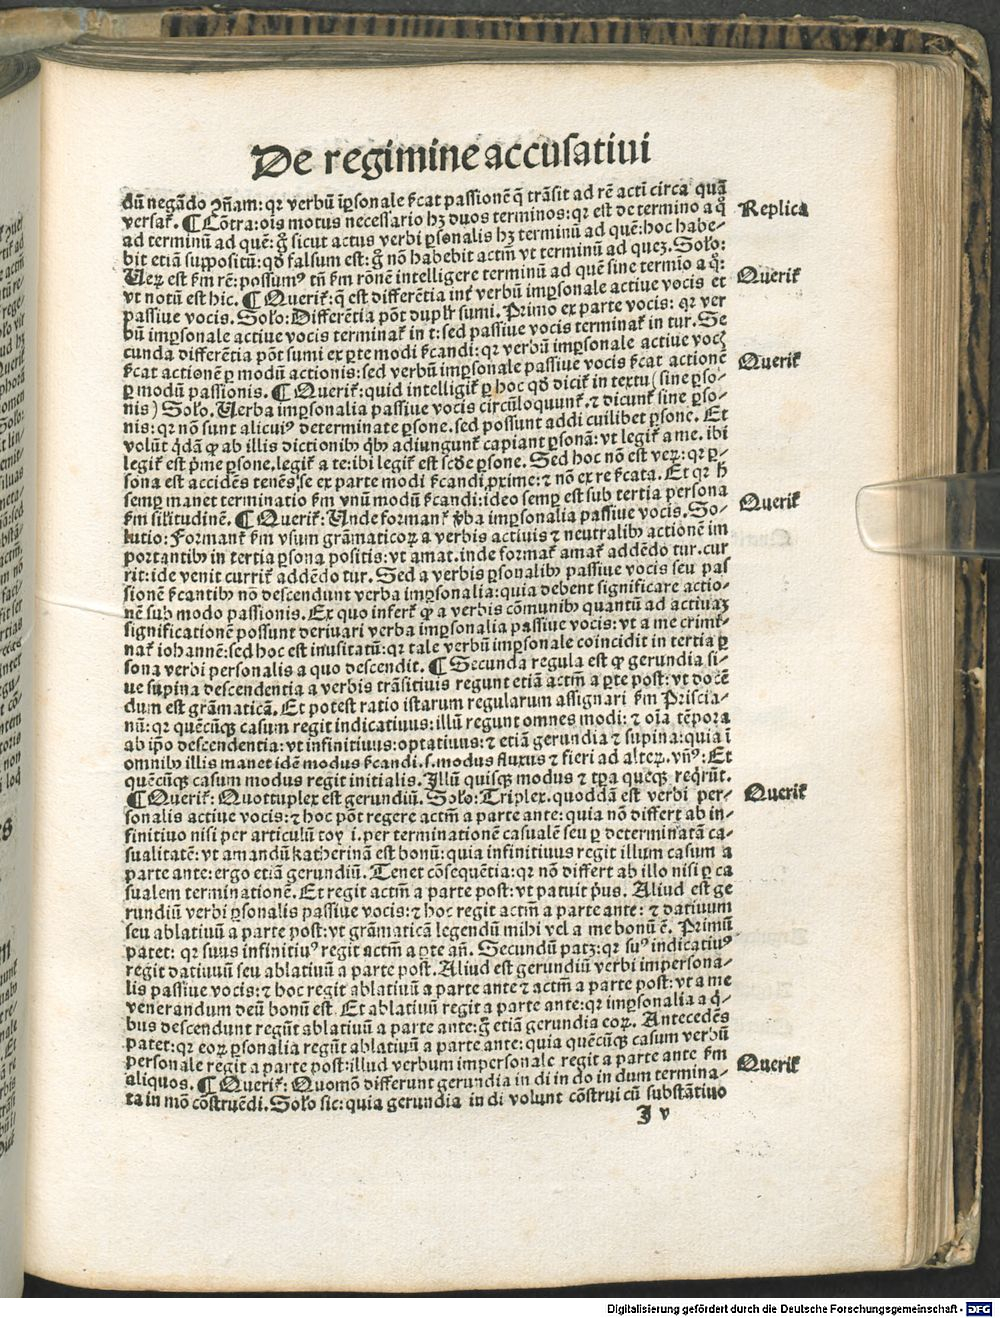 De regimine accusatiui
dũ negãdo ↄñam: qꝛ verbũ ĩꝑsonale ſi̾cat passionẽ q̃ trãsit ad rẽ acti circa quã
versat̃. ¶ Cõtra: oĩs motus necessario hꝫ duos terminos: qꝛ est de termino a q̊
ad terminũ ad quẽ: g̊ sicut actus verbi ꝑsonalis hꝫ terminũ ad quẽ: hoc habe-
bit etiã suppositũ: qd̛ falsum est: g̊ nõ habebit actm̃ vt terminũ ad quez. Solo:
Ueꝝ est ẜm rẽ: possum⁹ tñ ẜm rõnẽ intelligere terminũ ad quẽ sine termĩo a q̊:
vt notũ est hic. ¶ Querit̃: q̃ est differẽtia int̃ verbũ imꝑsonale actiue vocis et
passiue vocis. Solo: Differẽtia põt duplr̃ sumi. Primo ex parte vocis: qꝛ ver
bũ imꝑsonale actiue vocis terminat̃ in t: sed passiue vocis terminat̃ in tur. Se
cunda differẽtia põt sumi ex ꝑte modi ſi̾candi: qꝛ verbũ imꝑsonale actiue vocꝭ
ſi̾cat actionẽ ꝑ modũ actionis: sed verbũ imꝑsonale passiue vocis ſi̾cat actionẽ
ꝑ modũ passionis. ¶ Querit̃: quid intelligit̃ ꝑ hoc qd̛ dicit̃ in textu (sine ꝑso-
nis) Solo. Uerba imꝑsonalia passiue vocis circũloquunt̃. ⁊ dicunt̃ sine ꝑso-
nis: qꝛ nõ sunt alicui⁹ determinate ꝑsone. sed possunt addi cuilibet ꝑsone. Et
volũt q̇dã ꝙ ab illis dictionibꝫ q̇bꝫ adiungunt̃ capiant ꝑsonã: vt legit̃ a me. ibi
legit̃ est p̃me ꝑsone. legit̃ a te: ibi legit̃ est scd̛e ꝑsone. Sed hoc nõ est veꝝ: qꝛ ꝑ-
sona est accidẽs tenẽs se ex parte modi ſi̾candi ꝓxime: ⁊ nõ ex re ſi̾cata. Et qꝛ h̾
semꝑ manet terminatio ẜm vnũ modũ ſi̾candi: ideo semꝑ est sub tertia persona
ẜm sil̃itudinẽ. ¶ Querit̃: Unde formant̃ v̾ba imꝑsonalia passiue vocis. So-
lutio: Formant̃ ẜm vsum grãmaticoꝝ a verbis actiuis ⁊ neutralibꝫ actionẽ im
portantibꝫ in tertia ꝑsona positis: vt amat. inde format̃ amat̃ addẽdo tur. cur
rit: ĩde venit currit̃ addẽdo tur. Sed a verbis ꝑsonalibꝫ passiue vocis seu pas
sionẽ ſi̾cantibꝫ nõ descendunt verba imꝑsonalia: quia debent significare actio-
nẽ sub modo passionis. Ex quo infert̃ ꝙ a verbis cõmunibꝫ quantũ ad actiuaꝫ
significationẽ possunt deriuari verba imꝑsonalia passiue vocis: vt a me crimi-
nat̃ iohannẽ: sed hoc est inusitatũ: qꝛ tale verbũ imꝑsonale coincidit in tertia ꝑ
sona verbi personalis a quo descendit. ¶ Secunda regula est ꝙ gerundia si-
ue supina descendentia a verbis trãsitiuis regunt etiã actm̃ a ꝑte post: vt docẽ
dum est grãmaticã. Et potest ratio istarum regularum assignari ẜm Priscia-
nũ: qꝛ quẽcũqꝫ casum regit indicatiuus: illũ regunt omnes modi: ⁊ oĩa tẽpora
ab ip̃o descendentia: vt infinitiuus: optatiuus: ⁊ etiã gerundia ⁊ supina: quia ĩ
omnibꝫ illis manet idẽ modus ſi̾candi. s. modus fluxus ⁊ fieri ad alteꝝ. vñ⁹: Et
quẽcũqꝫ casum modus regit initialis. Illũ quisqꝫ modus ⁊ tp̃a queqꝫ reqrũt.
¶ Querit̃: Quottuplex est gerundiũ. Solo: Triplex. quoddã est verbi per-
sonalis actiue vocis: ⁊ hoc põt regere actm̃ a parte ante: quia nõ differt ab in-
finitiuo nisi per articulũ toy i. per terminationẽ casualẽ seu ꝑ determinatã ca-
sualitatẽ: vt amandũ katherinã est bonũ: quia infinitiuus regit illum casum a
parte ante: ergo etiã gerundiũ. Tenet cõsequẽtia: qꝛ nõ differt ab illo nisi ꝑ ca
sualem terminationẽ. Et regit actm̃ a parte post: vt patuit p̃us. Aliud est ge
rundiũ verbi ꝑsonalis passiue vocis: ⁊ hoc regit actm̃ a parte ante: ⁊ datiuum
seu ablatiuũ a parte post: vt grãmaticã legendũ mihi vel a me bonũ ẽ. Primũ
patet: qꝛ suus infinitiu⁹ regit actm̃ a ꝑte añ. Secundũ patꝫ: qꝛ su⁹ indicatiu⁹
regit datiuũ seu ablatiuũ a parte post. Aliud est gerundiũ verbi impersona-
lis passiue vocis: ⁊ hoc regit ablatiuũ a parte ante ⁊ actm̃ a parte post: vt a me
venerandum deũ bonũ est. Et ablatiuũ regit a parte ante: qꝛ imꝑsonalia a q̇-
bus descendunt regũt ablatiuũ a parte ante: g̊ etiã gerundia eoꝝ. Antecedẽs
patet: qꝛ eoꝝ ꝑsonalia regũt ablatiuũ a parte ante: quia quẽcũqꝫ casum verbũ
personale regit a parte post: illud verbum impersonale regit a parte ante ẜm
aliquos. ¶ Querit̃: Quomõ differunt gerundia in di in do in dum termina-
ta in mõ cõstruẽdi. Solo sic: quia gerundia in di volunt cõstrui cũ substãtiuo
I v
Replica
Querit̃
Querit̃
Querit̃
Querit̃
Querit̃
Digitalisierung gefördert durch die Deutsche Forschungsgemeinschaft - DFG